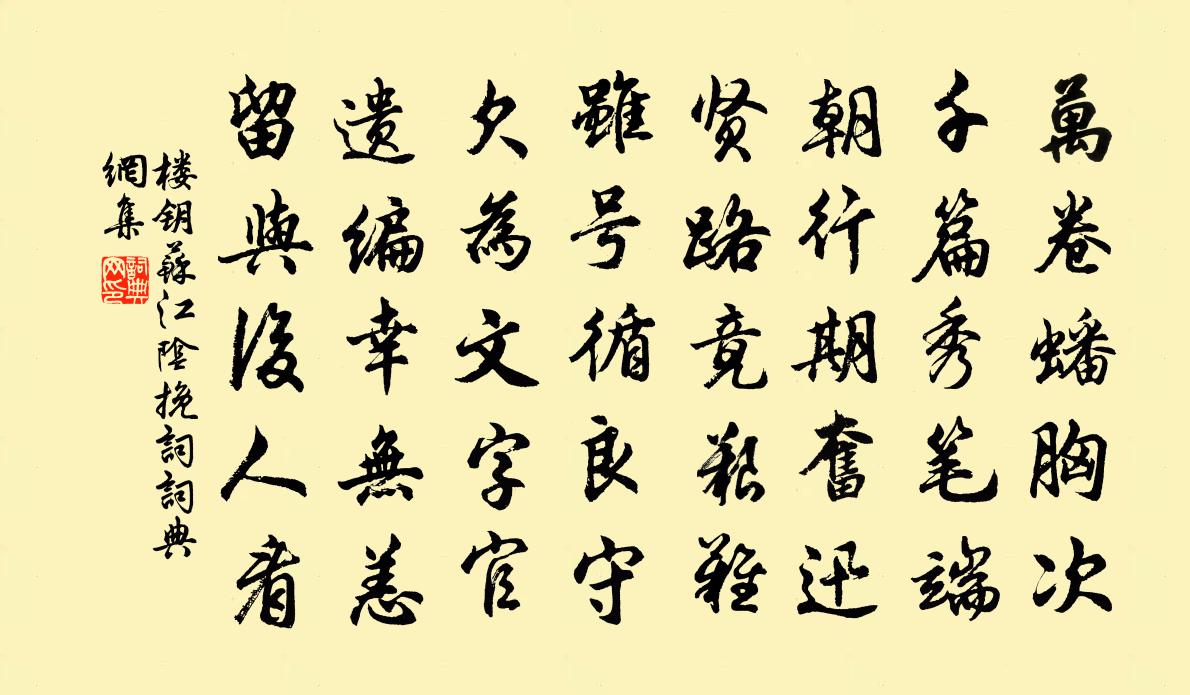 萬卷蟠胸次
千篇秀笔端
朝行期奮迅
贤路竟艱難
雖号循良守
欠為文字官
遗编幸無恙
留與後人看
楼钥蘇江陰挽詞詞典
網集
詞典
网印